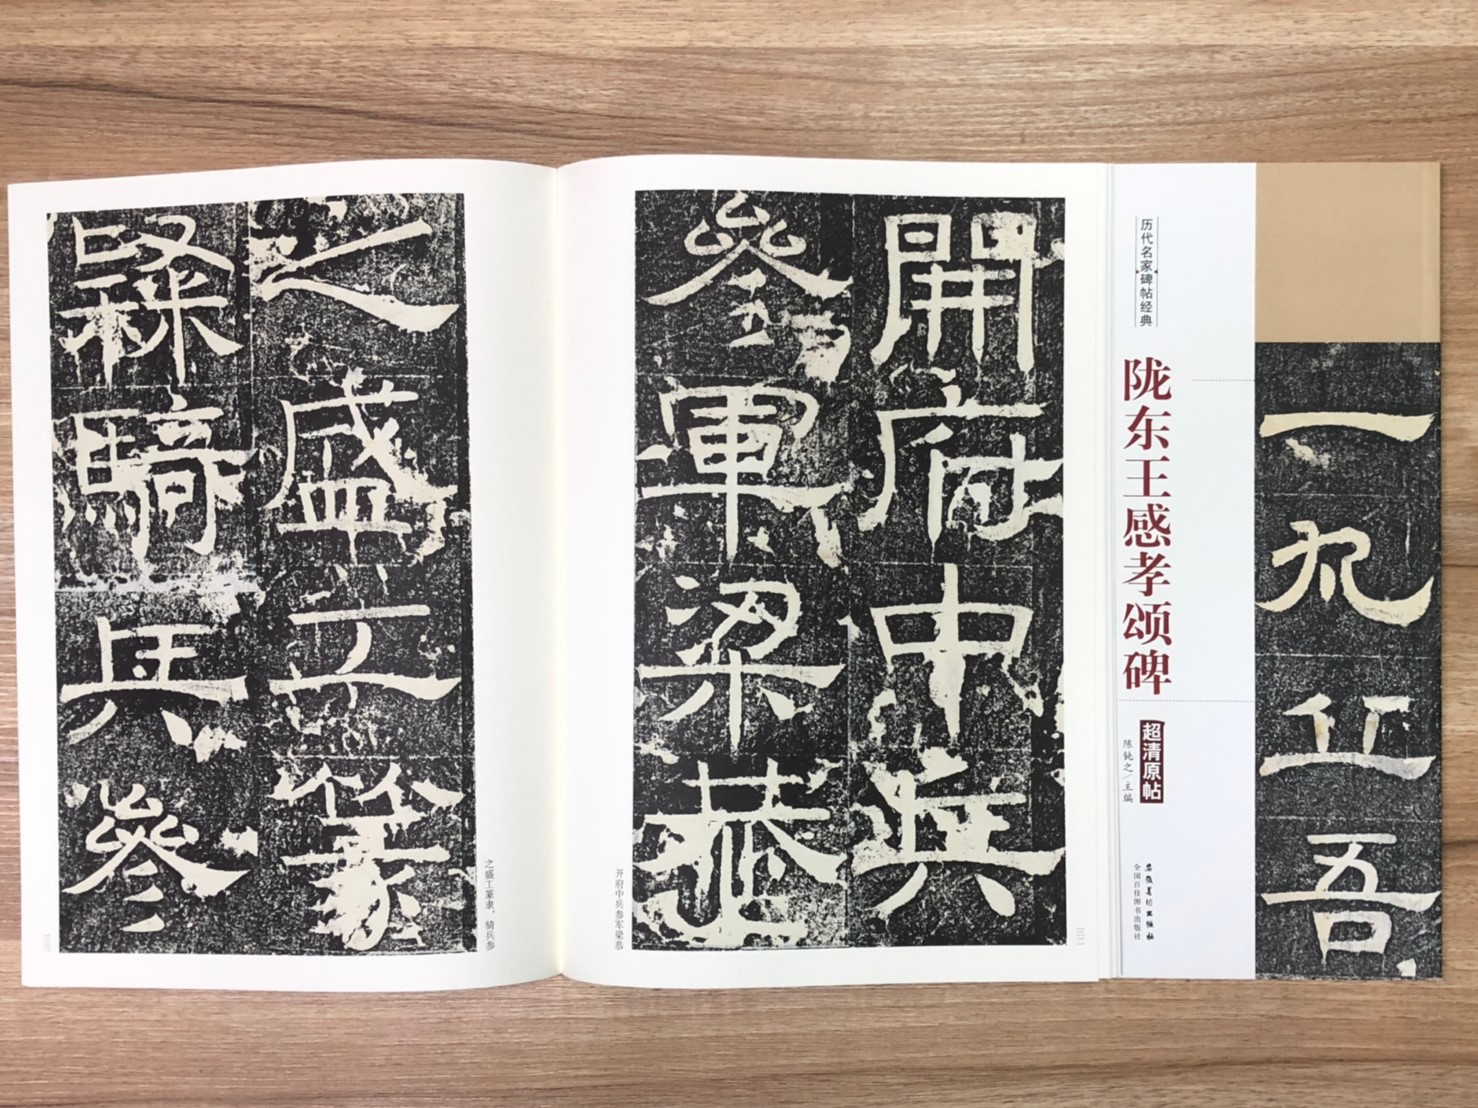 開府中兵
參軍梁恭
开府中兵参军梁恭
之盛工篆
隸騎兵參
之盛工篆隶，骑兵参
历代名家碑帖经典
陇东王感孝颂碑
超清原帖
陈钝之/主编
安徽美术出版社
全国百佳图书出版社
吾